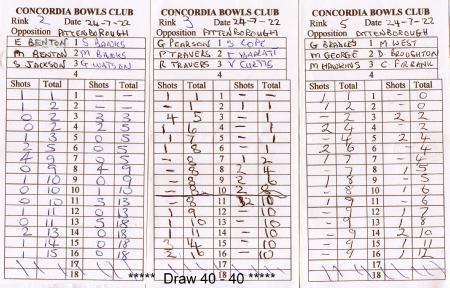 CONCORDIA BOWLS CLUB
Rink 2 Date 24-7-22
Opposition ATTENBOROUGH
E BENTON 1 S BANKS
M BENTON 2 M BANKS
S JACKSON 3 G WATSON
4
Shots Total Shots Total
1 1 1
1 2 2
0 2 3 3 3
0 2 4 2 5
1 3 5 0 5
2 5 6 0 5
4 9 7 0 5
0 9 8 4 9
1 10 9 0 9
0 10 10 1 10
0 10 11 3 13
1 11 12 0 13
0 11 13 5 18
2 13 14 0 18
1 14 15 0 18
1 15 16 0 18
17
18
CONCORDIA BOWLS CLUB
Rink 3 Date 24-7-22
Opposition ATTENBOROUGH
G PEARSON 1 S COPE
P TRAVERS 2
R TRAVERS 3 V CURTIS
4
Shots Total Shots Total
1 1 1
- 1 2
4 5 3
1 6 4
5
1 8 6
- 8 7 1 2
- 8 8 2 4
- 8 9 2 6
- 8 10 2 8
- 8 11 2 10
1 9 12 - 10
1 10 13 - 10
1 11 14 - 10
3 14 15 - 10
2 16 16 - 10
17
18
CONCORDIA BOWLS CLUB
Rink 5 Date 24-7-22
Opposition ATTENBOROUGH
G BRADLEY 1 M WEST
M GEORGE 2 D BROUGHTON
M HAWKINS 3 C PIRRANK
4
Shots Total Shots Total
1 1 1 - 0
1 2 2 - 0
- 2 3 2 2
2 4 4 - 2
- 4 5 2 4
2 6 6 - 4
7
8
9
- 8 10 1 6
1 9 11 - 6
- 9 12 1 7
- 9 13 1 8
- 9 14 2 10
- 9 15 1 11
- 9 16 1 12
17
18
***** Draw 40 - 40 *****